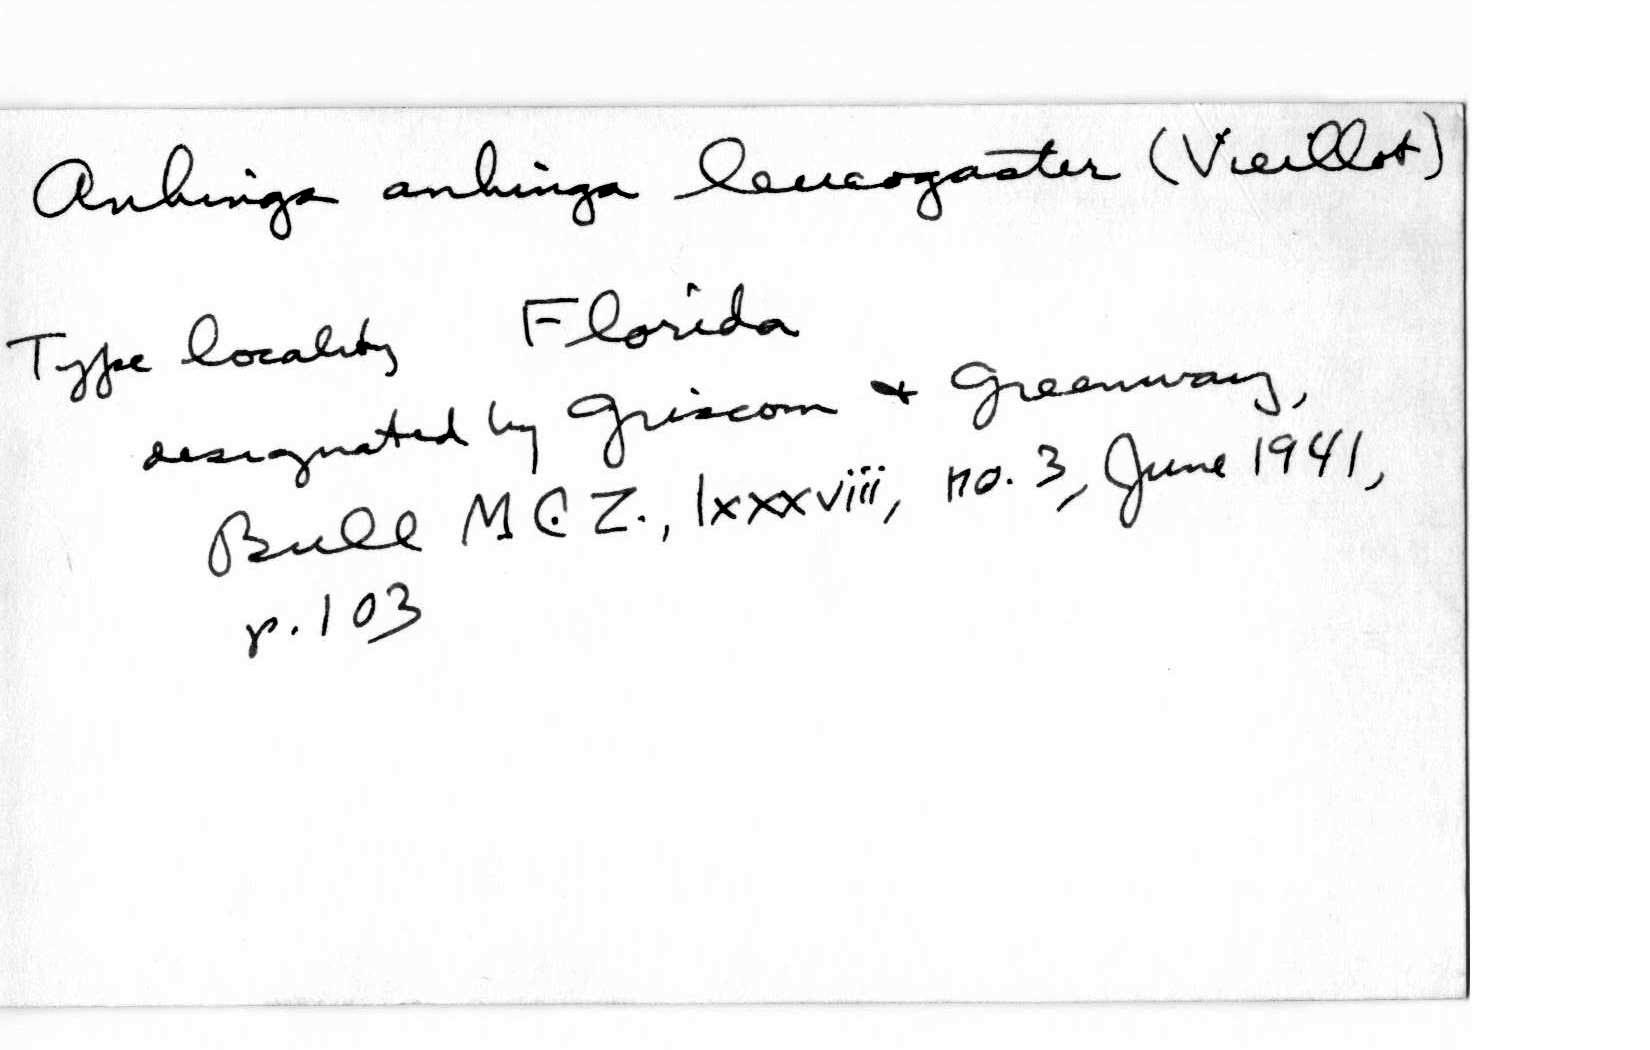 Anhinga anhinga leucogaster (Vieillot)
Type locality Florida
designated by Griscom & Greenway,
Bull M.C.Z., lxxxviii, no. 3, June 1941,
p. 103